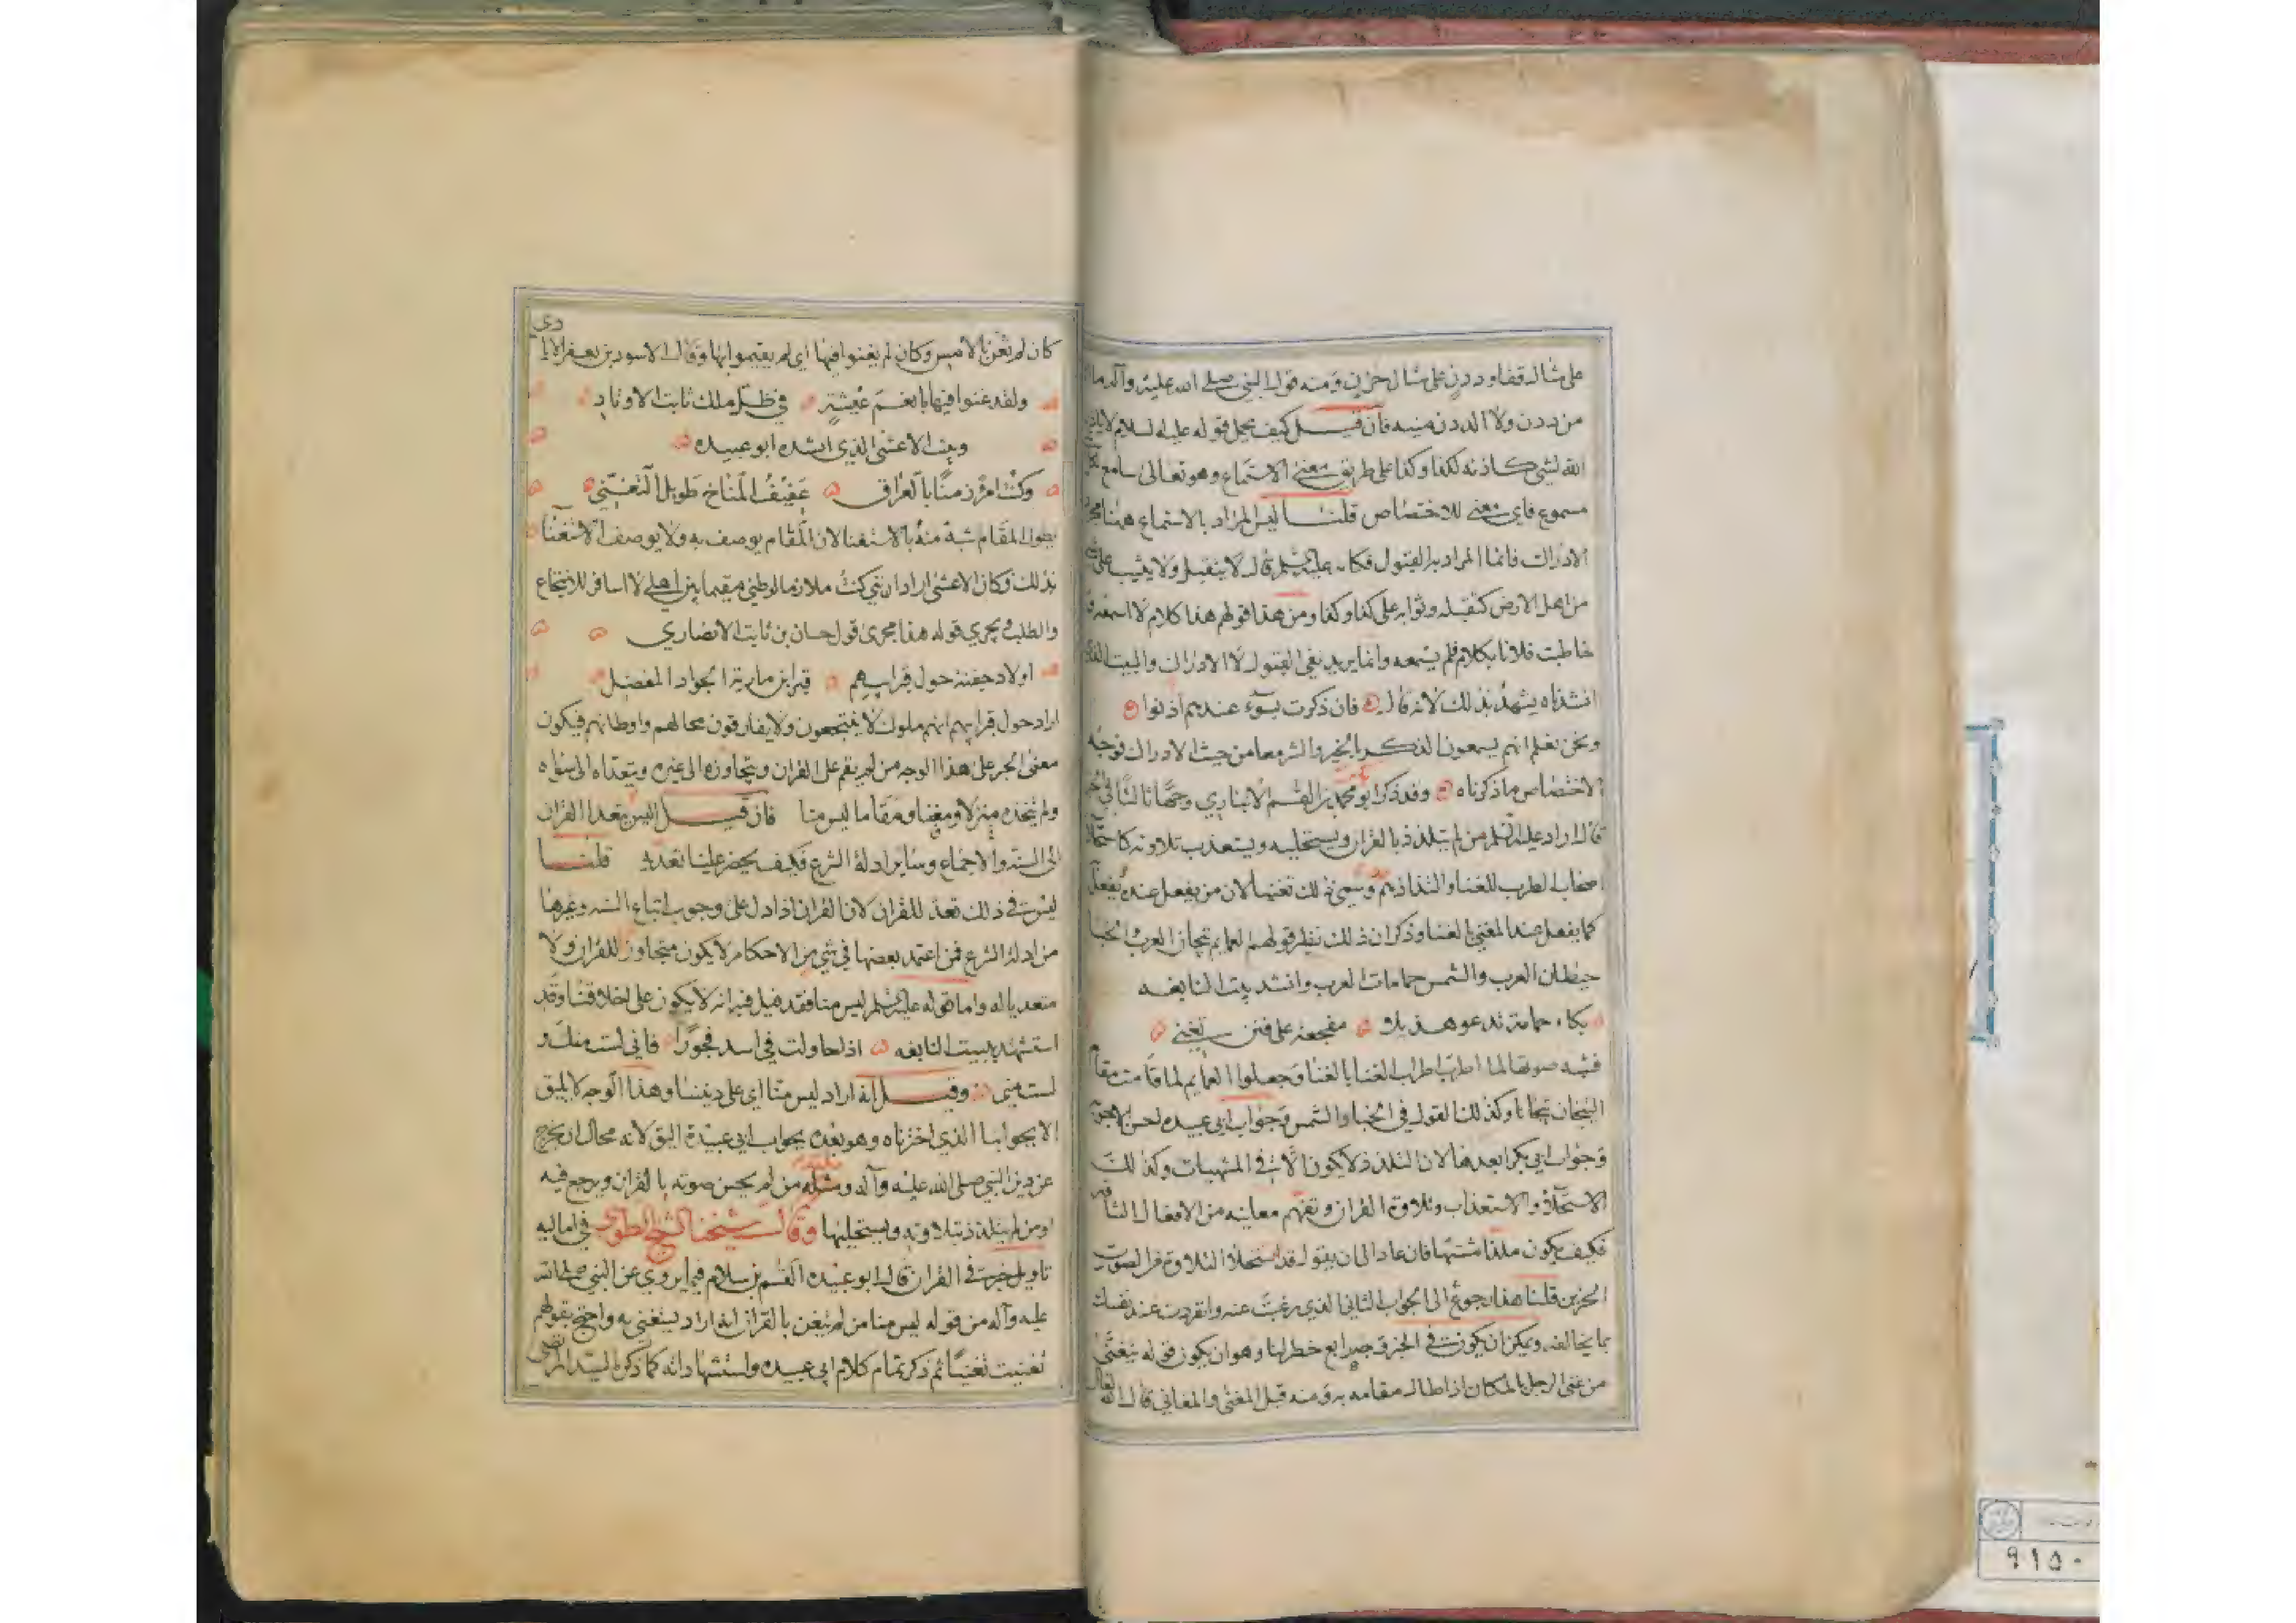 على مثال قفا وددن على مثال حزن ومنه قول النبي صلى الله عليه وآله ما انا
من ددن ولا الددن منيه فان قيل كيف يحمل قوله عليه السلام لا ياذن
الله لشي كاذنه لكذا وكذا على طريق معنى الاستماع وهو تعالى سامع لكل
مسموع فاي معنى للاختصاص قلنا ليس المراد بالاستماع ههنا مجرد
الادراك فانما المراد به القبول فكانه عليه السلم قال لا يتقبل ولا يثيب على شي
من اهل الارض كتقبله وثوابه على كذا وكذا ومن هذا قولهم هذا كلام لا اسمعه و
خاطبت فلانا بكلام فلم يسمعه وانما يريد نفي القبول لا الادراك والبيت الذي
انشدناه يشهد بذلك لانه قال فان ذكرت بسوء عندهم اذنوا
ونحن نعلم انهم يسمعون الذكر بالخير والشر معا من حيث الادراك فوجه
الاختصاص ما ذكرناه وقد ذكر ابو محمد بن القسم الانباري وجها ثالثا في الخبر
قال اراد عليه السلم من لم يتلذذ بالقران ويستحليه ويستعذب تلاوته كاستحلا
اصحاب الطرب للغنا والتذاذهم وسمي ذلك تغنيا لان من يفعل عنده يفعل
كما يفعل عند المغني بالغنا وذكر ان ذلك نظير قولهم العمايم تيجان العرب والحبا
حيطان العرب والشمس حمامات العرب وانشد بيت النابغه
بكاء حمامة تدعو هذيلا مفجعة على فنن تغني
فشبه صوتها لما اطرب اطراب الغنا بالغنا وجعلوا العمايم لما قامت مقام
التيجان تيجانا وكذلك القول في الحبا والشمس وجواب ابي عبيده احسن الاجوبة
وجواب ابي بكر ابعدها لان التلذذ لا يكون الا في المشتهيات وكذلك
الاستحلاء والاستعذاب وتلاوة القران وتفهم معانيه من الافعال الشاقه
فكيف يكون ملذا مشتها فان عاد الى ان يقول قد تستحلا التلاوة من الصوت
الحزين قلنا هذا رجوع الى الجواب الثاني الذي رغبت عنه وانفردت عند نفسك
بما يخالفه ويمكن ان يكون في الخبر وجه رابع خطر لنا وهو ان يكون قوله يتغنى
من غني الرجل بالمكان اذا طال مقامه به ومنه قيل المغنى والمغاني قال الله تعالى
كان لم تغن بالامس وكان لم يغنوا فيها اي لم يقيموا بها وقال الاسود بن يعفر الايادي
ولقد غنوا فيها بانعم عيشة في ظل ملك ثابت الاوتاد
وبيت الاعشى الذي انشده ابو عبيده
وكنت امرؤ زمنا بالعراق عفيف المناخ طويل التغني
بطول المقام شبة منه بالاستغنا لان المقام يوصف به ولا يوصف الاستغنا
بذلك وكان الاعشى اراد انني كنت ملازما لوطني مقيما بين اهلي لا اسافر للانتجاع
والطلب ويجري قوله هذا مجرى قول حسان بن ثابت الانصاري
اولاد جفنة حول قبر ابيهم قبر ابن مارية الجواد المفضل
اراد حول قبر ابيهم انهم ملوك لا ينتجعون ولا يفارقون محالهم واوطانهم فيكون
معنى الخبر على هذا الوجه من لم يقم على القران ويتجاوزه الى غيره ويتعداه الى سواه
ولم يتخذه منزلا ومغنا ومقاما ليس منا فان قيل اليس تعدا القران
الى السنه والاجماع وساير ادلة الشرع فكيف يحضر علينا تعديه قلنا
ليس في ذلك تعد للقران لان القران اذا دل على وجوب اتباع السنه وغيرها
من ادلة الشرع فمن اعتمد بعضها في شي من الاحكام لا يكون متجاوزا للقران ولا
متعديا له واما قوله عليه السلم ليس منا فقد قيل فيه انه لا يكون على اخلاقنا وقد
استشهد ببيت النابغه اذا حاولت في اسد فجورا فاني لست منك و
لست مني وقيل انه اراد ليس منا اي على ديننا وهذا الوجه لا يليق
الا بجوابنا الذي اخترناه وهو بعده بجواب ابي عبيدة اليق لانه محال ان يخرج
عن دين النبي صلى الله عليه وآله ومثله من لم يحسن صوته بالقران ويرجع فيه
او من لم يتلذذ بتلاوته ويستحليها وقال شيخنا الشيخ الطوسي في اماليه
تاويل خبر في القران قال ابو عبيده القسم بن سلام فيما يروى عن النبي صلى الله
عليه وآله من قوله ليس منا من لم يتغن بالقران انه اراد يستغني به واحتج بقولهم
تغنيت تغنيا ثم ذكر تمام كلام ابي عبيده واستشهاداته كما ذكره السيد المرتضى
٩١٥٠